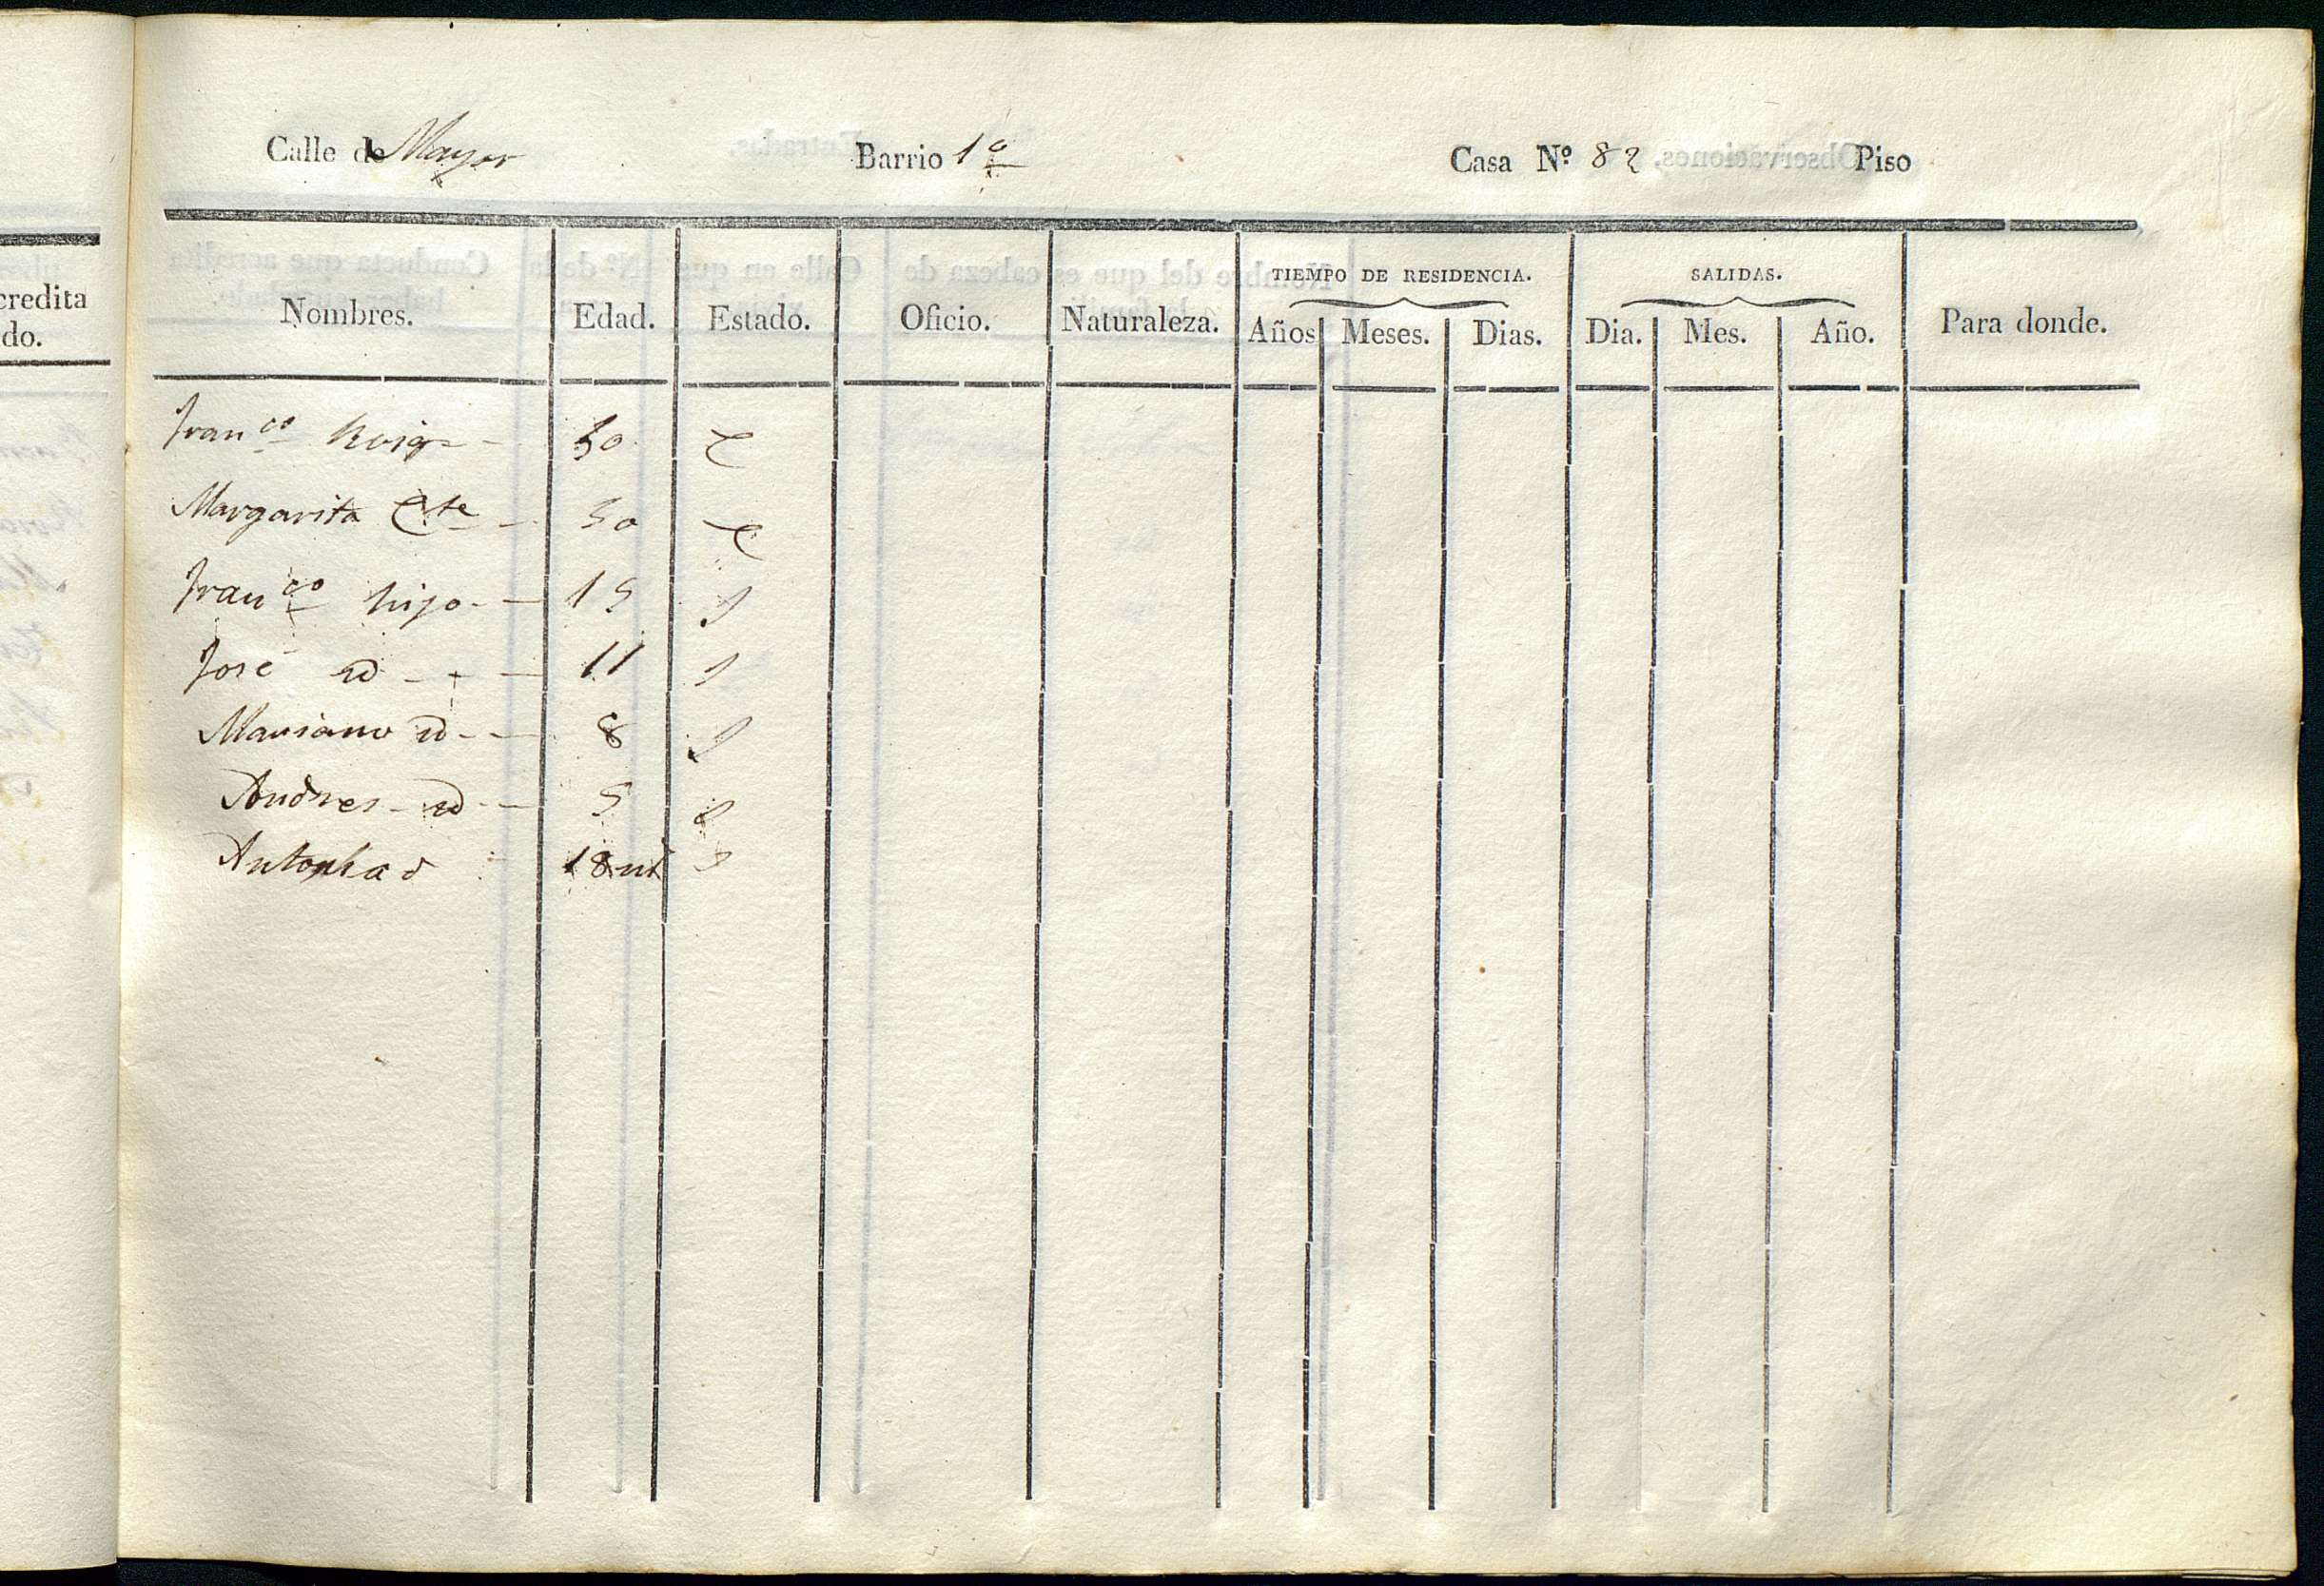 credita
do.
Calle de Mayor Barrio 1º Casa Nº 82 Piso
Nombres. Edad. Estado. Oficio. Naturaleza. TIEMPO DE RESIDENCIA. Años Meses. Dias. SALIDAS. Dia. Mes. Año. Para donde.
Franco Roig 50 C
Margarita 50 C
Franco hijo 15 S
José id 11 S
Mariano id 8 S
Andres id 5 S
18 S